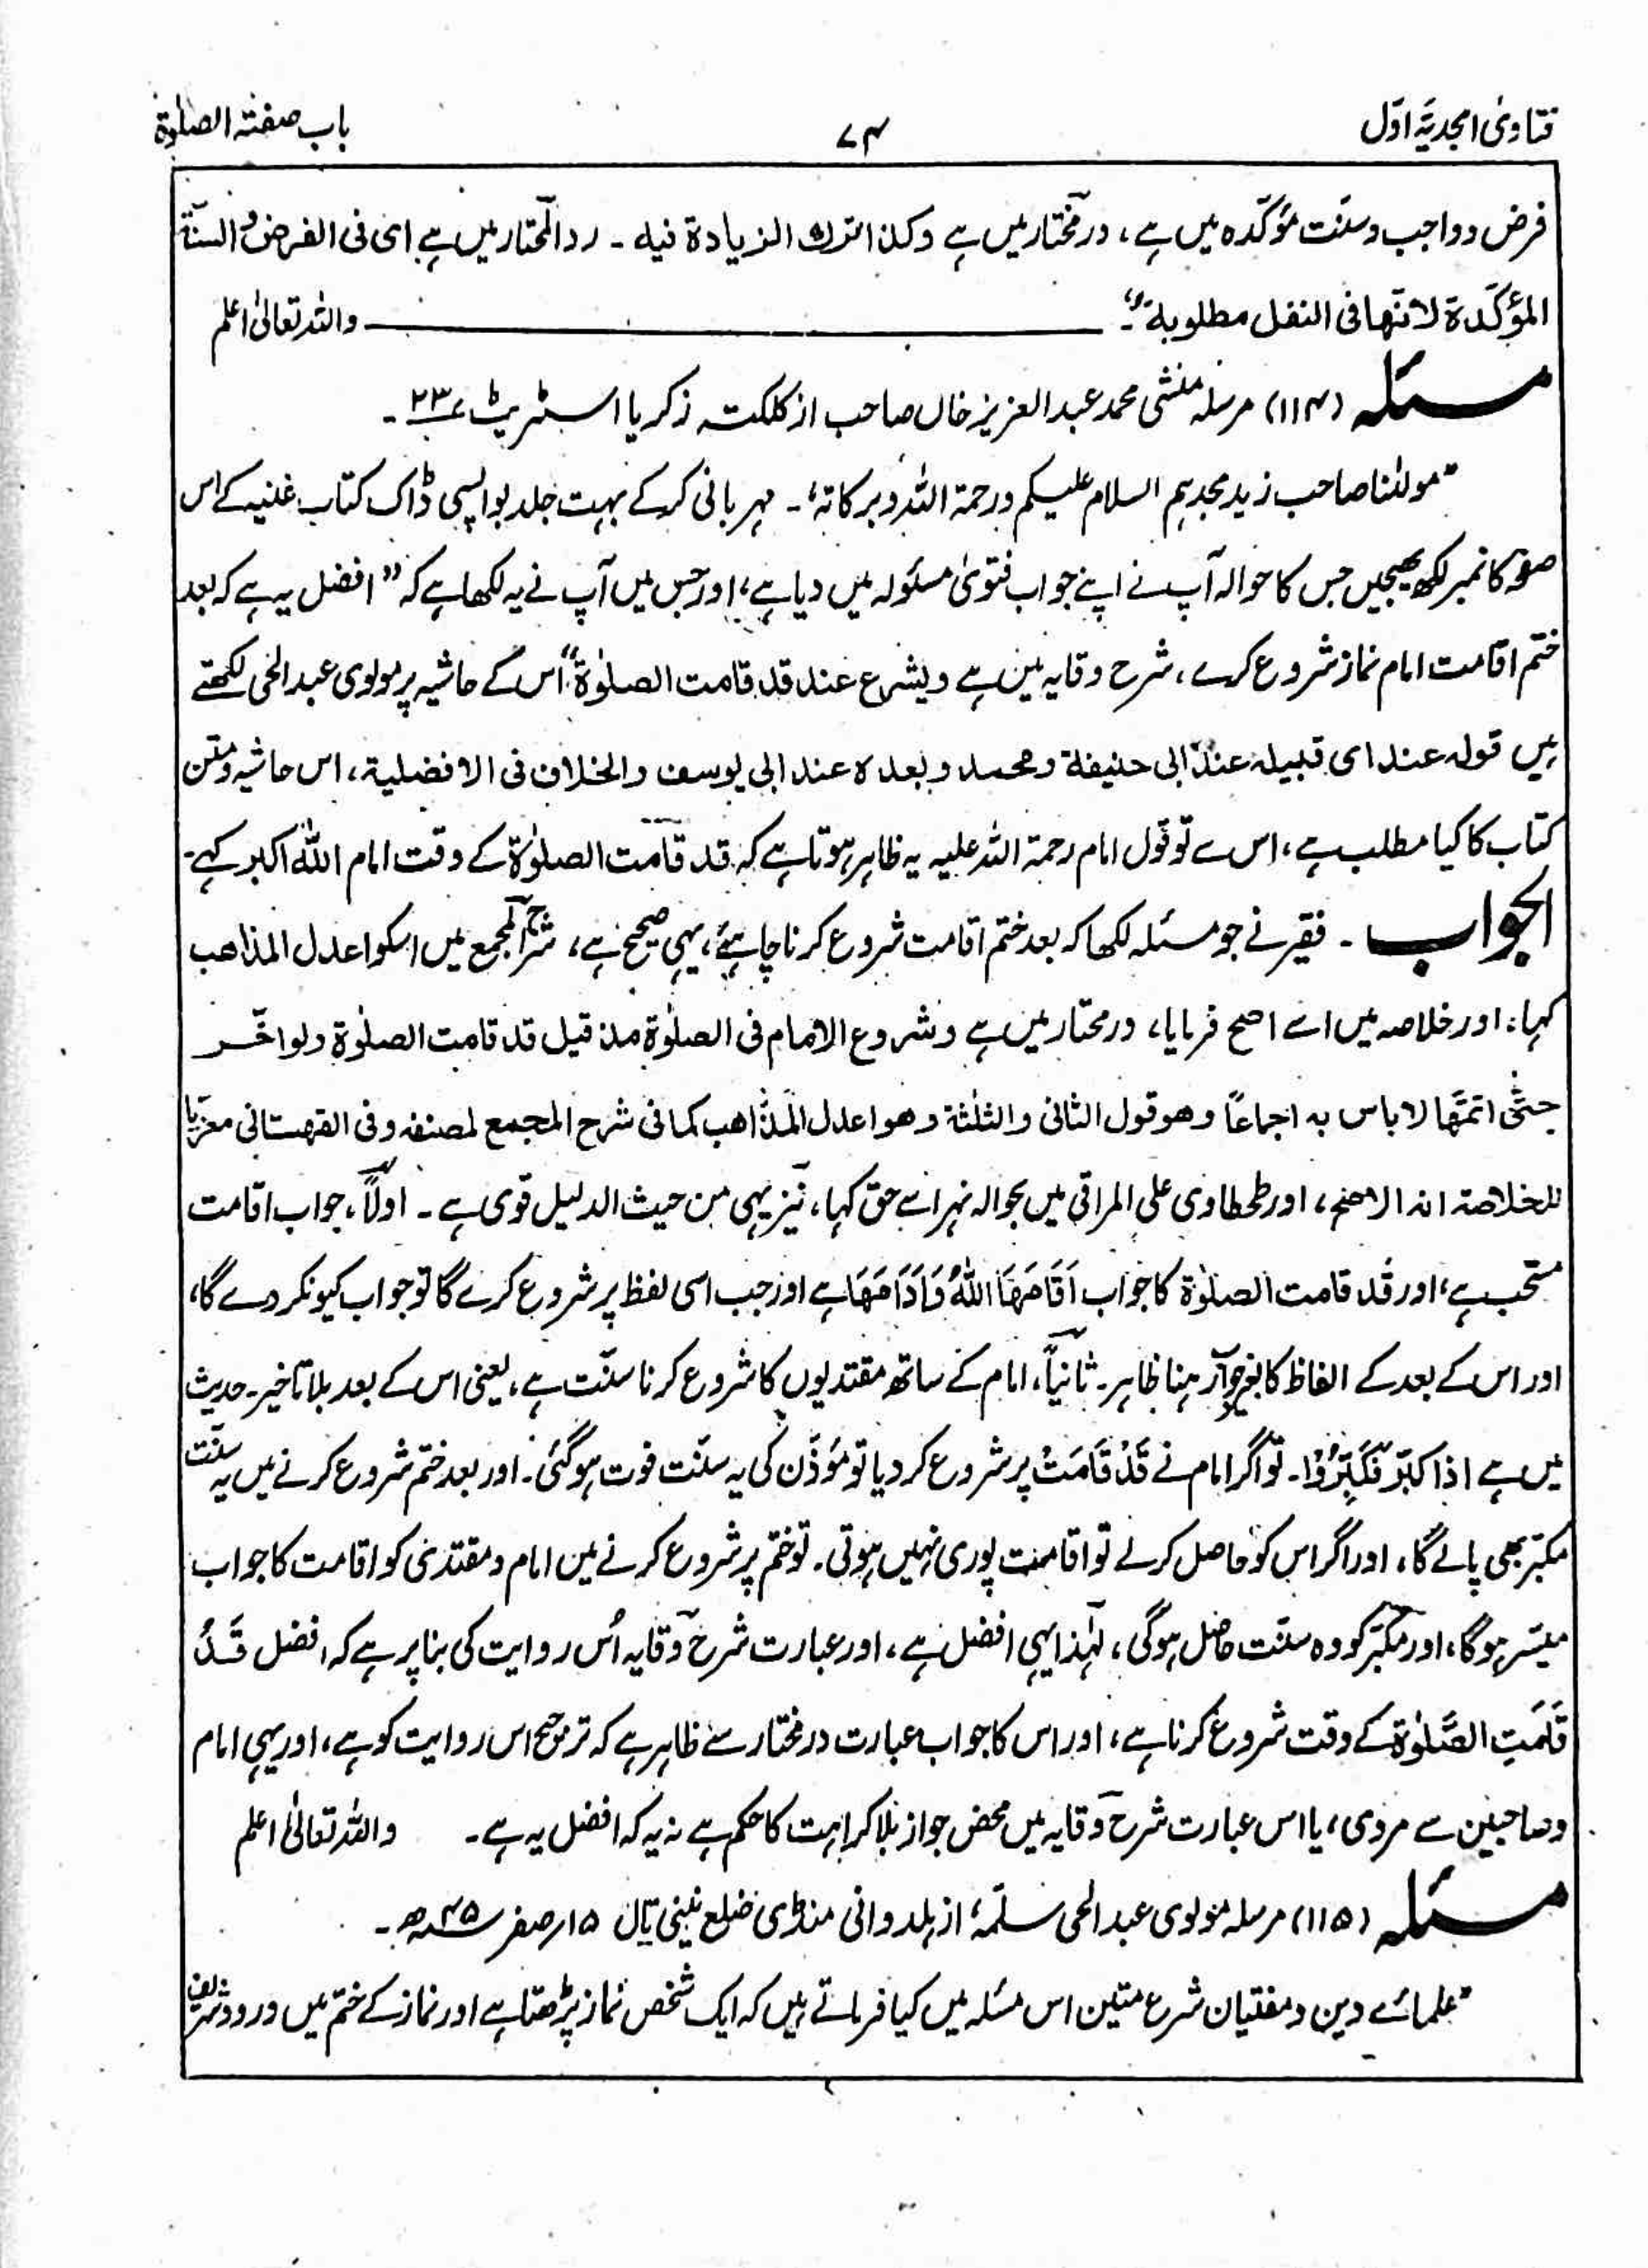 فتاویٰ امجدیّہ اوّل
۷۴
باب صفتہ الصلوٰۃ
فرض وواجب وسنّت مؤکّدہ میں ہے، درمختار میں ہے وکذا ترك الزیادۃ فیہ ۔ ردالمحتار میں ہے ای فی الفرض و السنّۃ
المؤکّدۃ لانّھا فی النفل مطلوبۃ"۔ واللہ تعالیٰ اعلم
مسئلہ (۱۱۴) مرسلہ منشی محمد عبدالعزیز خاں صاحب از کلکتہ زکریا اسٹریٹ ۲۳ ۔
"مولٰنا صاحب زید مجدہم السلام علیکم ورحمۃ اللہ وبرکاتہٗ ۔ مہربانی کرکے بہت جلد بواپسی ڈاک کتاب غنیہ کے اس
صفحہ کا نمبر لکھ بھیجیں جس کا حوالہ آپ نے اپنے جواب فتویٰ مسئولہ میں دیا ہے، اور جس میں آپ نے یہ لکھا ہے کہ "افضل یہ ہے کہ بعد
ختم اقامت امام نماز شروع کرے، شرح وقایہ میں ہے ویشرع عند قد قامت الصلوٰۃ" اس کے حاشیہ پر مولوی عبدالحی لکھتے
ہیں قولہ عند ای قبیلہ عند ابی حنیفۃ ومحمد وبعدہ عند ابی یوسف والخلاف فی الافضلیۃ، اس حاشیہ ومتن
کتاب کا کیا مطلب ہے، اس سے تو قول امام رحمۃ اللہ علیہ یہ ظاہر ہوتا ہے کہ قد قامت الصلوٰۃ کے وقت امام اللہ اکبر کہے۔
الجواب ۔ فقیر نے جو مسئلہ لکھا کہ بعد ختم اقامت شروع کرنا چاہیئے، یہی صحیح ہے، شرح المجمع میں اسکو اعدل المذاھب
کہا، اور خلاصہ میں اسے اصح فرمایا، درمختار میں ہے وشروع الامام فی الصلوٰۃ مذ قیل قد قامت الصلوٰۃ ولو اخّر
حتّٰی اتمّھا لا باس بہ اجماعًا وھو قول الثانی والثلٰثۃ وھو اعدل المذاھب کما فی شرح المجمع لمصنفہ وفی القھستانی معزیّا
للخلاصۃ انہ الاصح، اور طحطاوی علی المراقی میں بحوالہ نہر اسے حق کہا، نیز یہی من حیث الدلیل قوی ہے ۔ اولاً، جواب اقامت
مستحب ہے، اور قد قامت الصلوٰۃ کا جواب اَقَامَھَا اللہُ وَاَدَامَھَا ہے اور جب اسی لفظ پر شروع کرے گا تو جواب کیونکر دے گا،
اور اس کے بعد کے الفاظ کا بغیر جواب رہنا ظاہر۔ ثانیاً، امام کے ساتھ مقتدیوں کا شروع کرنا سنّت ہے، یعنی اس کے بعد بلا تاخیر۔ حدیث
میں ہے اذا کبّر فَکَبِّرُوْا۔ تو اگر امام نے قَدْ قَامَتْ پر شروع کردیا تو مُؤذّن کی یہ سنّت فوت ہوگئی۔ اور بعد ختم شروع کرنے میں یہ سنّت
مکبّر بھی پالے گا، اور اگر اس کو حاصل کرلے تو اقامت پوری نہیں ہوتی۔ تو ختم پر شروع کرنے میں امام ومقتدی کو اقامت کا جواب
میسّر ہوگا، اور مکبّر کو وہ سنّت حاصل ہوگی، لہٰذا یہی افضل ہے، اور عبارت شرح وقایہ اُس روایت کی بنا پر ہے کہ افضل قَدْ
قَامَتِ الصَّلوٰۃ کے وقت شروع کرنا ہے، اور اس کا جواب عبارت درمختار سے ظاہر ہے کہ ترجیح اس روایت کو ہے، اور یہی امام
وصاحبین سے مروی، یا اس عبارت شرح وقایہ میں محض جواز بلاکراہت کا حکم ہے نہ یہ کہ افضل یہ ہے ۔ واللہ تعالیٰ اعلم
مسئلہ (۱۱۵) مرسلہ مولوی عبدالحی سلّمہٗ از ہلدوانی منڈی ضلع نینی تال ۱۵ر صفر ۴۵ھ ۔
"علمائے دین ومفتیان شرع متین اس مسئلہ میں کیا فرماتے ہیں کہ ایک شخص نماز پڑھتا ہے اور نماز کے ختم میں درود شریف